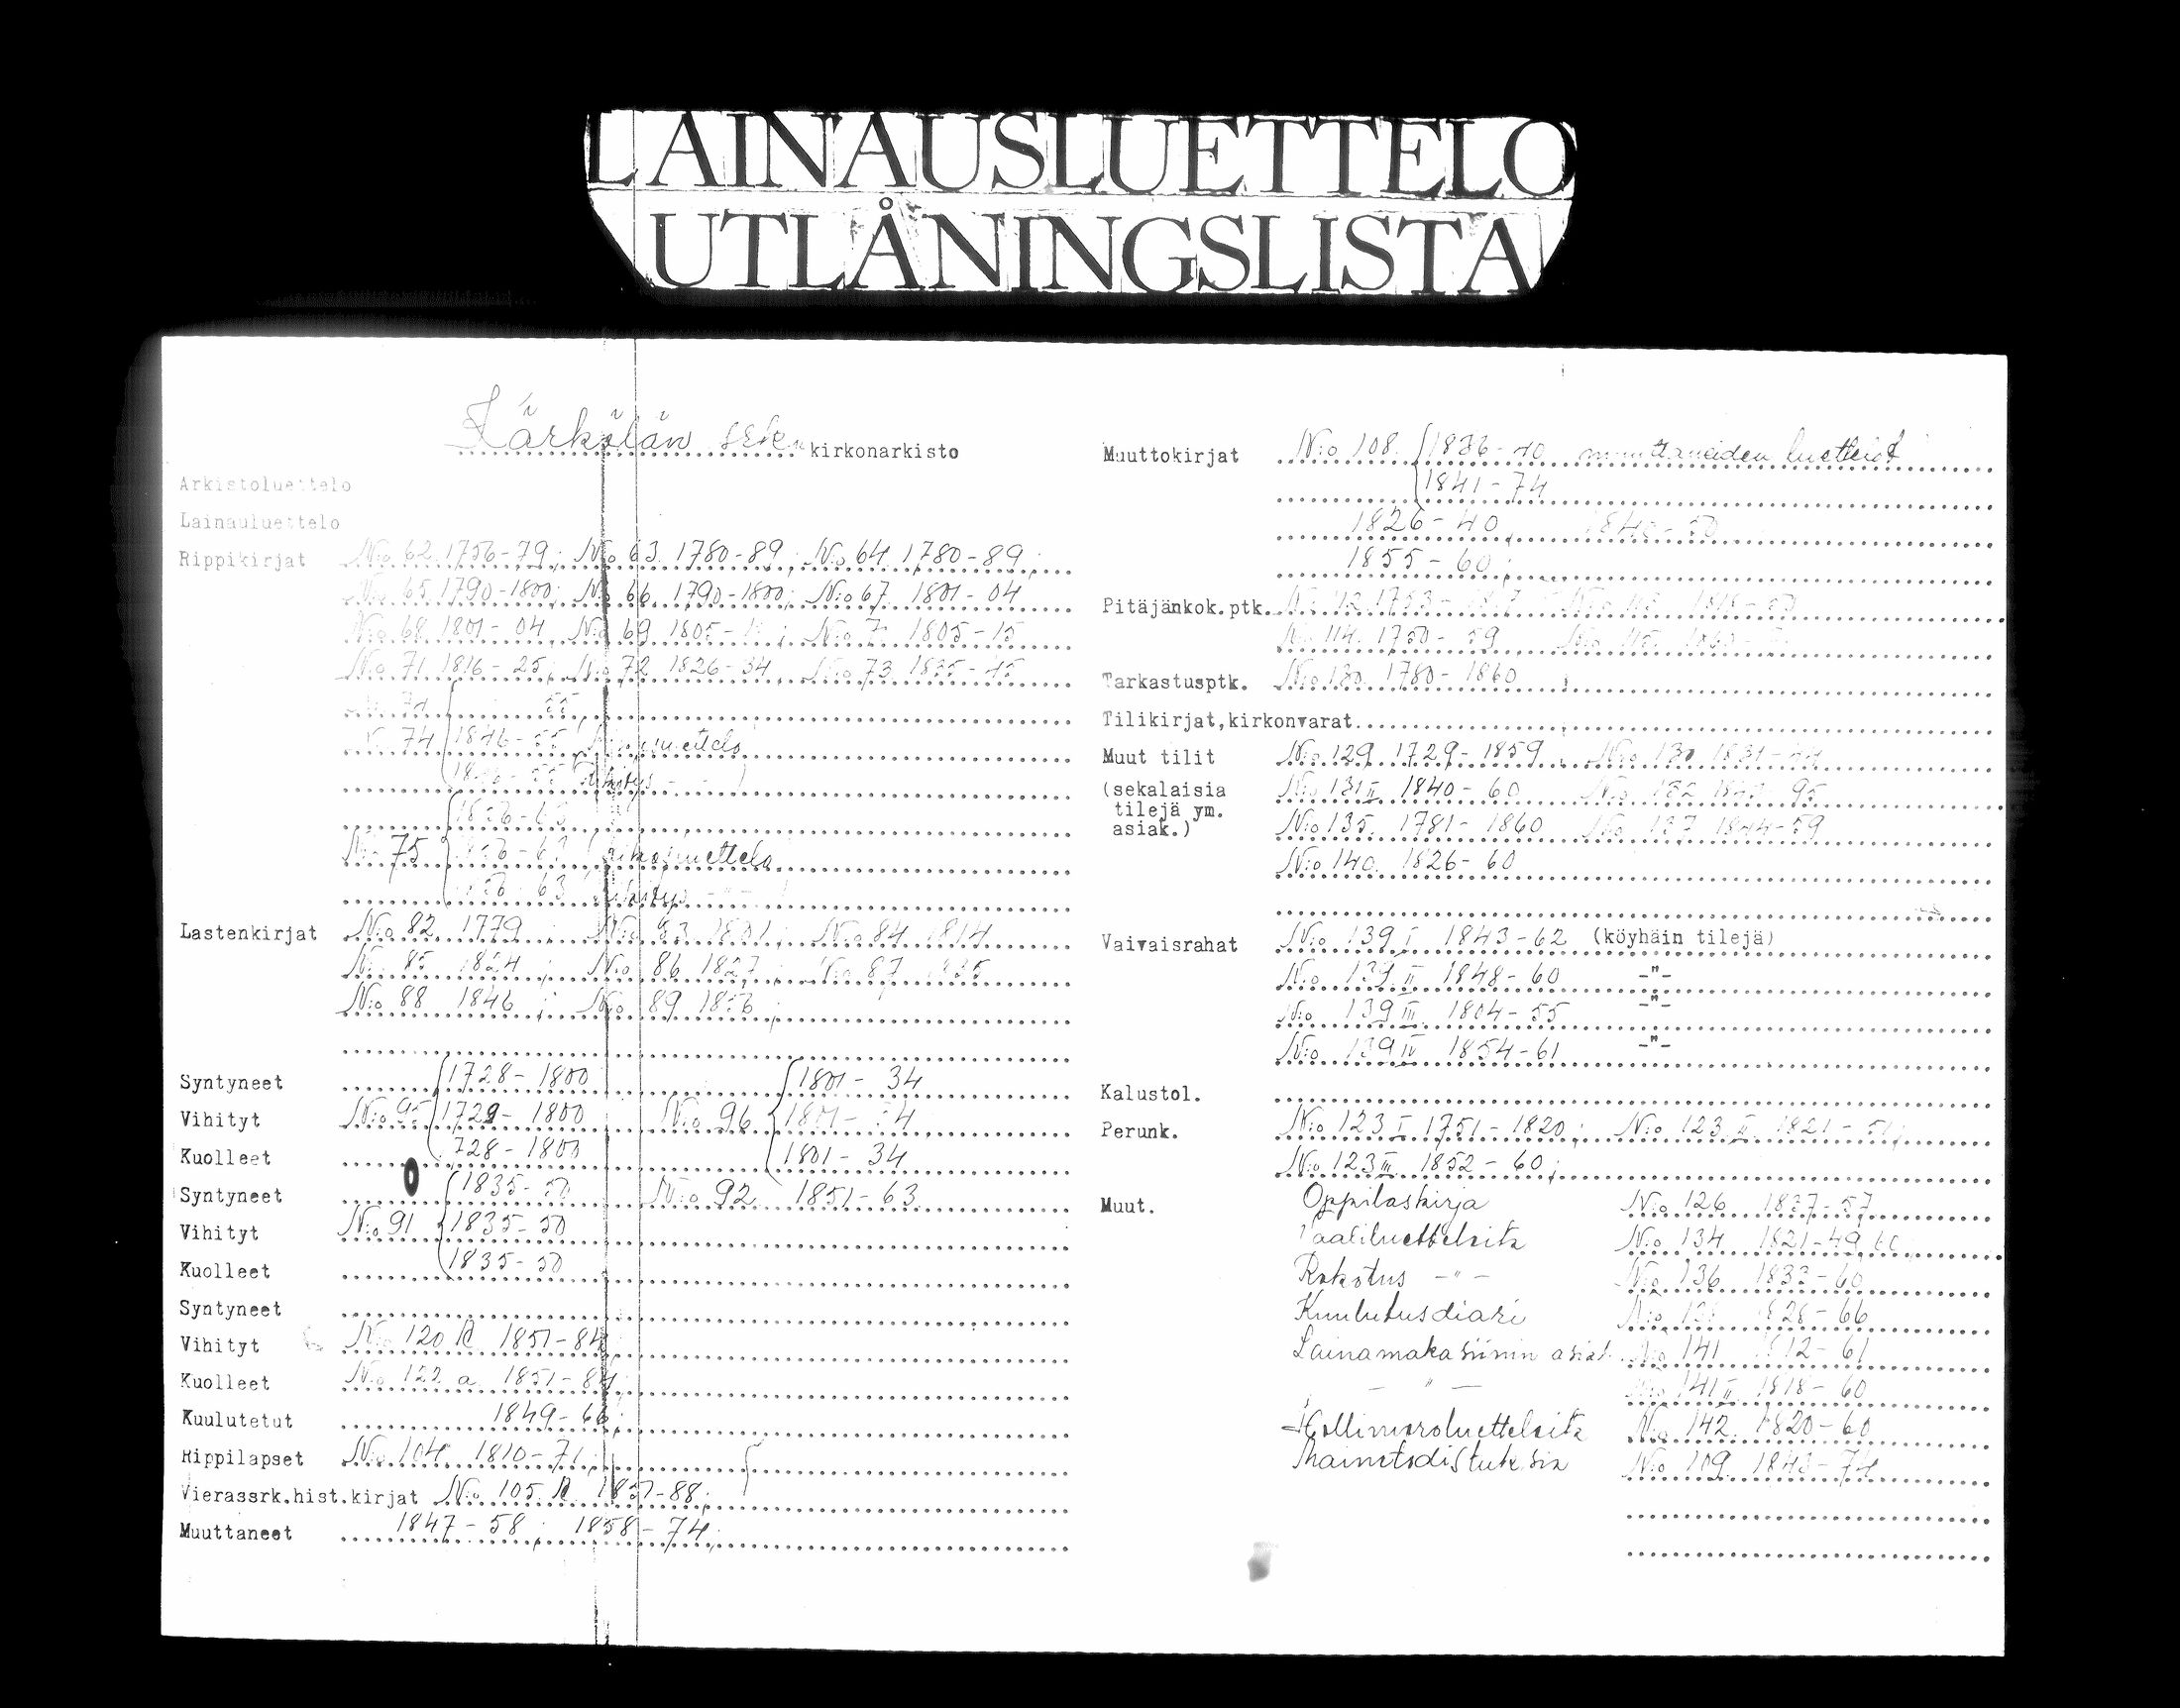 LAINAUSLUETTELO
UTLÅNINGSLISTA
Kärkölän srk.n kirkonarkisto
Arkistoluettelo
Lainauluettelo
Rippikirjat N:o 62. 1756-79; N:o 63. 1780-89; N:o 64. 1780-89;
N:o 65. 1790-1800; N:o 66. 1790-1800; N:o 67. 1801-04
N:o 68. 1801-04 N:o 69. 1805- 1805-15
N:o 71. 1816-25; N:o 72 1826-34 N:o 73. 1835-45
74
N:o 74 1846-55
N:o 75
63
Lastenkirjat N:o 82. 1779; N:o 83 1801; N:o 84 1814
N:o 85 1824; N:o 86 1827; N:o 87
N:o 88 1846; N:o 89
Syntyneet 1728-1800 1801-34
Vihityt N:o 95 1729-1800 N:o 96 1801-34
Kuolleet 728-1800 1801-34
Syntyneet 1835-50 N:o 92. 1851-63
Vihityt N:o 91 1835-50
Kuolleet 1835-50
Syntyneet
Vihityt N:o 120 1851-84
Kuolleet N:o 122 a. 1851-84
Kuulutetut 1849-66;
Rippilapset N:o 104 1810-71;
Vierassrk.hist.kirjat N:o 105. 88;
Muuttaneet 1847-58; 1858-74;
Muuttokirjat N:o 108. 1836-40 muuttaneiden luettelot
1841-74
1826-40, 1840-50
1855-60;
Pitäjänkok.ptk.
N:o 114. 1750-59
Tarkastusptk. N:o 130. 1780-1860
Tilikirjat,kirkonvarat
Muut tilit N:o 129. 1729-1859
(sekalaisia N:o 131 II 1840-60 95
tilejä ym. N:o 135. 1781-1860 N:o 137 1844-59
asiak.)
N:o 140. 1826-60
Vaivaisrahat N:o 139 I 1843-62 (köyhäin tilejä)
N:o 139 II 1848-60 -"-
N:o 139 III 1804-55 -"-
N:o 139 IV 1854-61 -"-
Kalustol.
Perunk. N:o 123 I 1751-1820; N:o 123 II 1821-51;
N:o 123 III 1852-60;
Muut. Oppilaskirja N:o 126 1837-57
Vaaliluetteloita N:o 134 1821-49,
Rokotus -"- N:o 136 1833-60
Kuulutusdiari 1828-66
Lainamakasiinin asiat. N:o 141 1812-61
-"- N:o 141 II 1818-60
Hollinvaroluetteloita N:o 142. 1820-60
Mainetodistuksia N:o 109. 1843-74